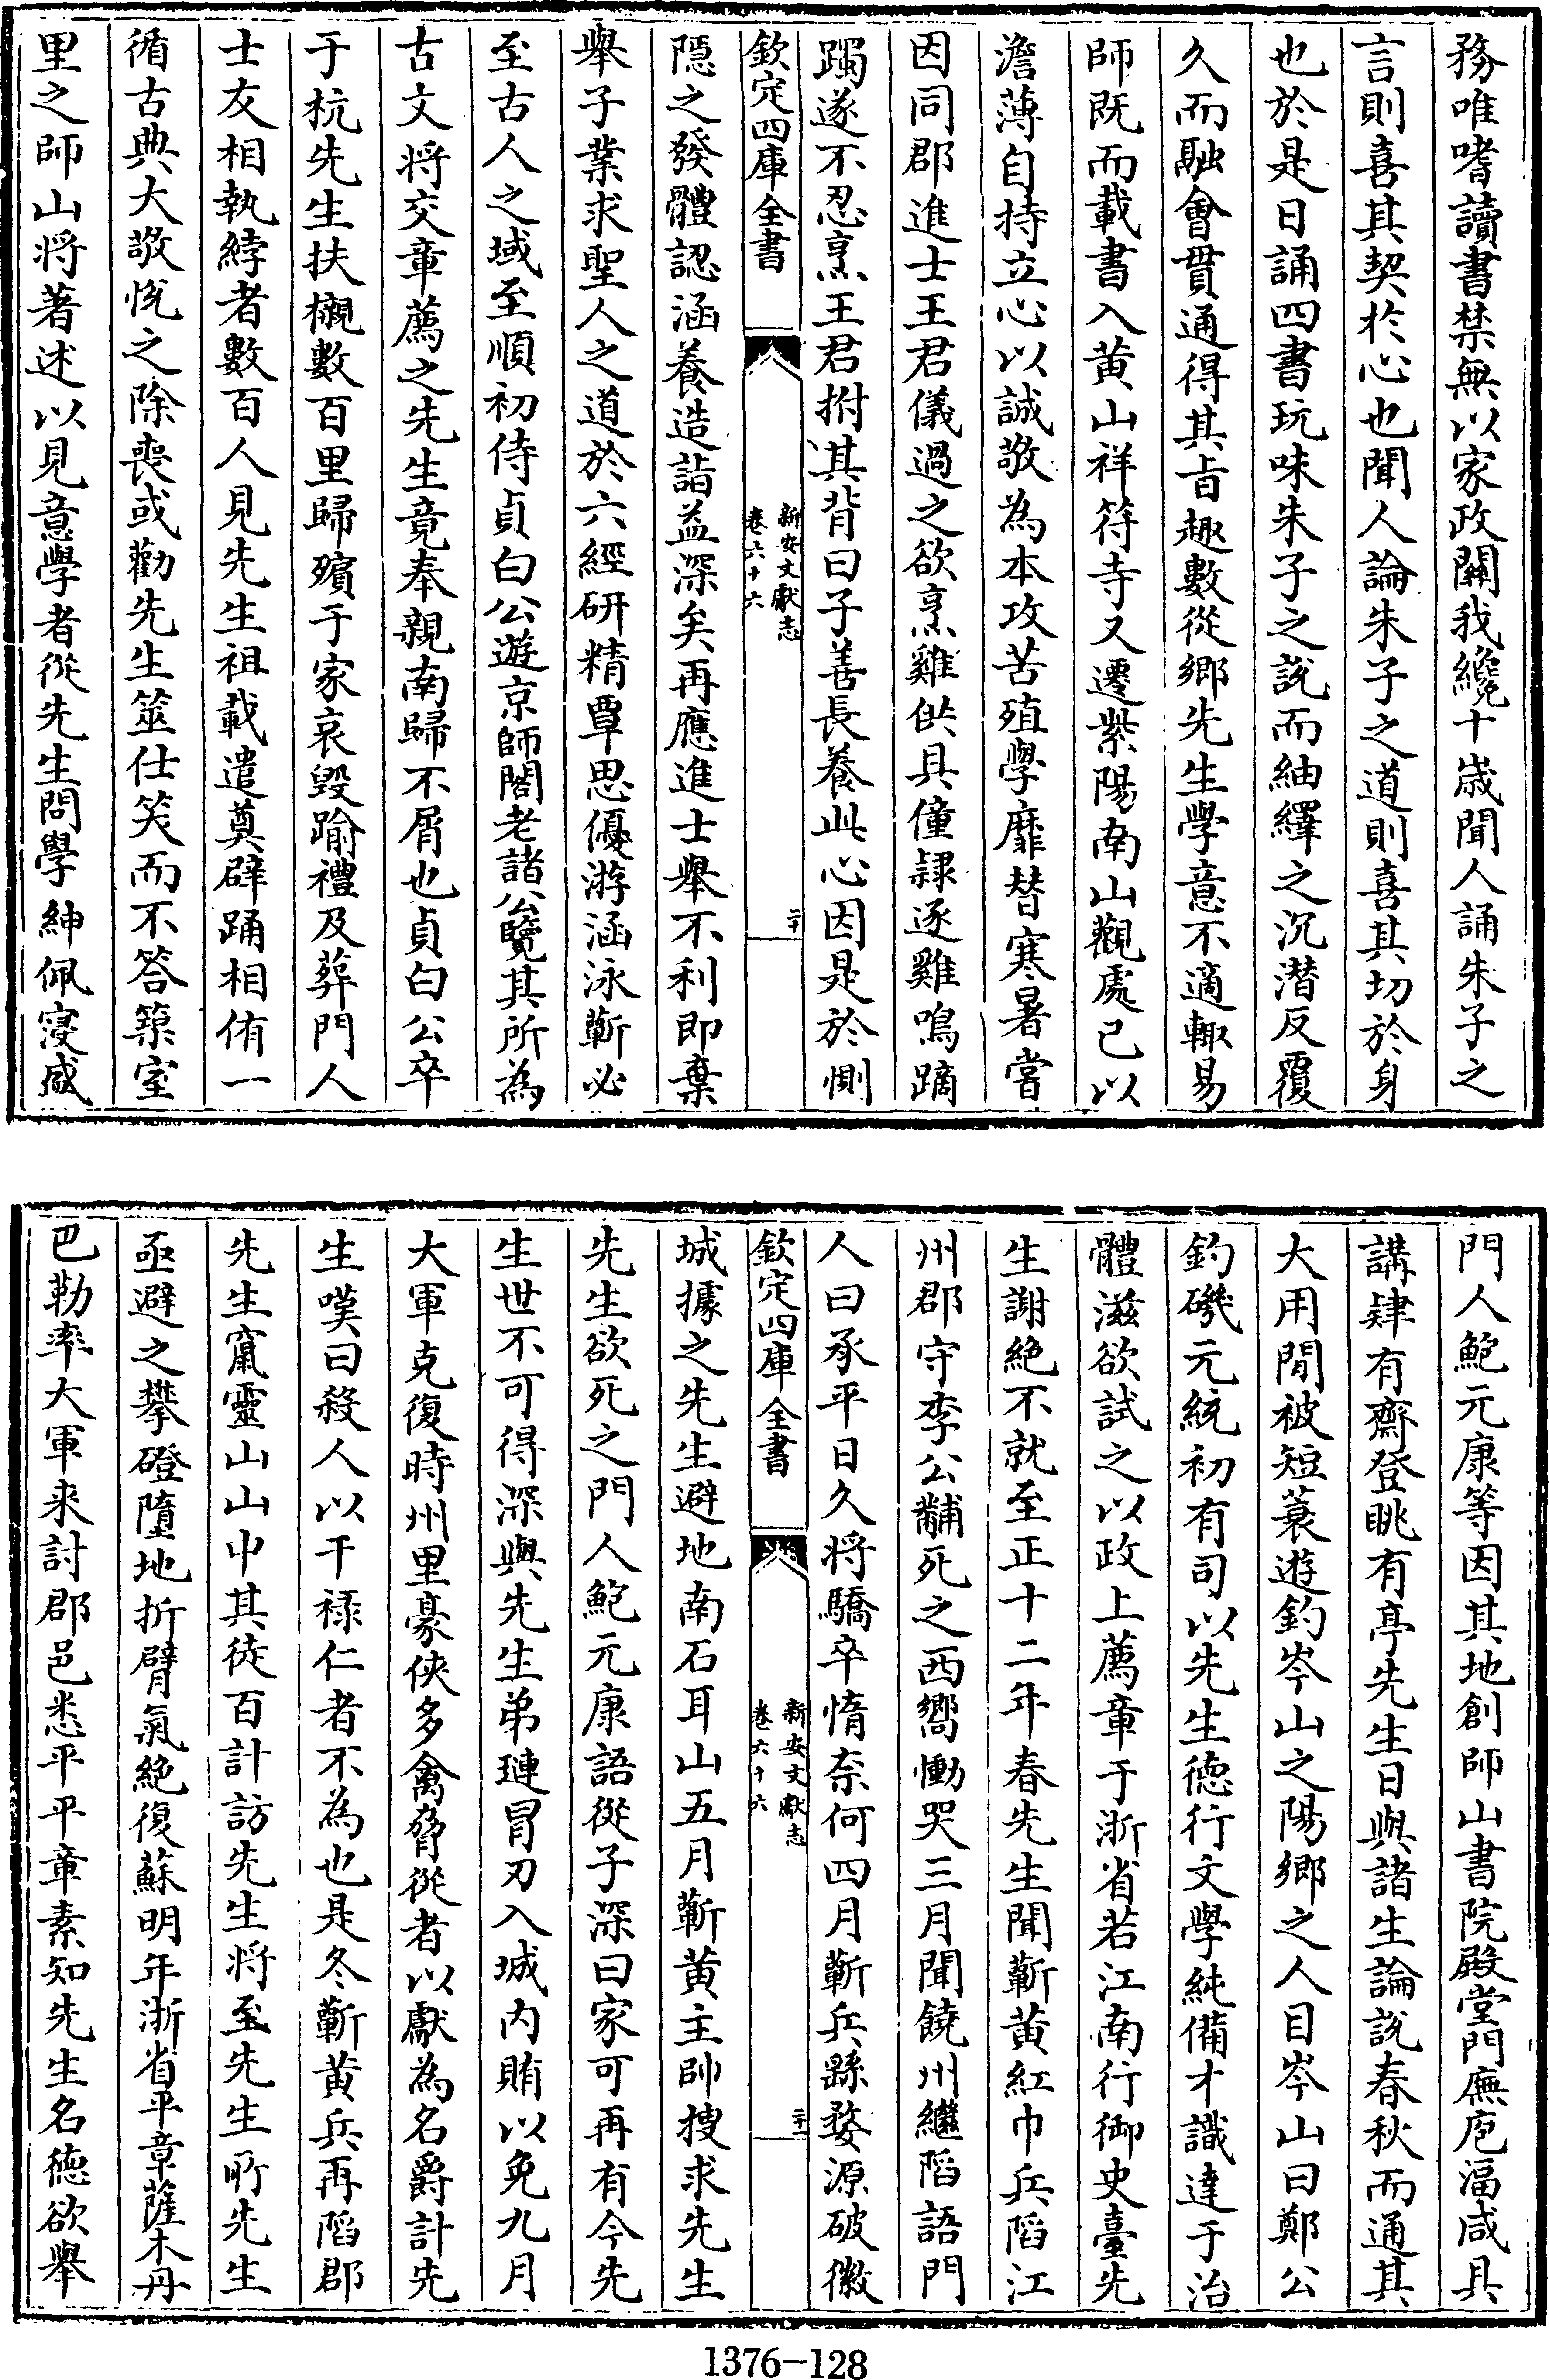 務唯嗜讀書禁無以家政關我纔十歳聞人誦朱子之
言則喜其契於心也聞人論朱子之道則喜其切於身
也於是日誦四書玩味朱子之說而紬繹之沉潜反覆
久而融會貫通得其旨趣數從鄉先生學意不適輙易
師既而載書入黄山祥符寺又遷紫陽南山觀處已以
澹薄自持立心以誠敬為本攻苦殖學靡替寒暑嘗
因同郡進士王君儀過之欲烹雞供具僮隷逐雞鳴蹢
躅遂不忍烹王君拊其背曰子善長養此心因是於惻
欽定四庫全書
新安文獻志
卷六十六
二十
隱之發體認涵養造詣益深矣再應進士舉不利即棄
舉子業求聖人之道於六經研精覃思優游涵泳蘄必
至古人之域至順初侍貞白公遊京師閣老諸公覽其所為
古文将交章薦之先生竟奉親南歸不屑也貞白公卒
于杭先生扶櫬數百里歸殯于家哀毀踰禮及葬門人
士友相執綍者數百人見先生祖載遣奠辟踊相侑一
循古典大敬悅之除喪或勸先生筮仕笑而不答築室
里之師山将著述以見意學者從先生問學紳佩寖盛
門人鮑元康等因其地創師山書院殿堂門廡庖湢咸具
講肄有齋登眺有亭先生日與諸生論說春秋而通其
大用間被短蓑遊釣岑山之陽鄉之人目岑山曰鄭公
釣磯元統初有司以先生徳行文學純備才識達于治
體滋欲試之以政上薦章于浙省若江南行御史臺先
生謝絶不就至正十二年春先生聞蘄黄紅巾兵陷江
州郡守李公黼死之西嚮慟哭三月聞饒州繼陷語門
人曰承平日久将驕卒惰奈何四月蘄兵繇婺源破徽
欽定四庫全書
新安文獻志
卷六十六
二十一
城據之先生避地南石耳山五月蘄黄主帥搜求先生
先生欲死之門人鮑元康語從子深曰家可再有今先
生世不可得深與先生弟璉冒刃入城内賄以免九月
大軍克復時州里豪俠多禽脅從者以獻為名爵計先
生嘆曰殺人以干禄仁者不為也是冬蘄黄兵再陷郡
先生竄靈山山中其徒百計訪先生将至先生所先生
亟避之攀磴墮地折臂氣絶復蘇明年浙省平章薩木丹
巴勒率大軍来討郡邑悉平平章素知先生名徳欲舉
1376-128